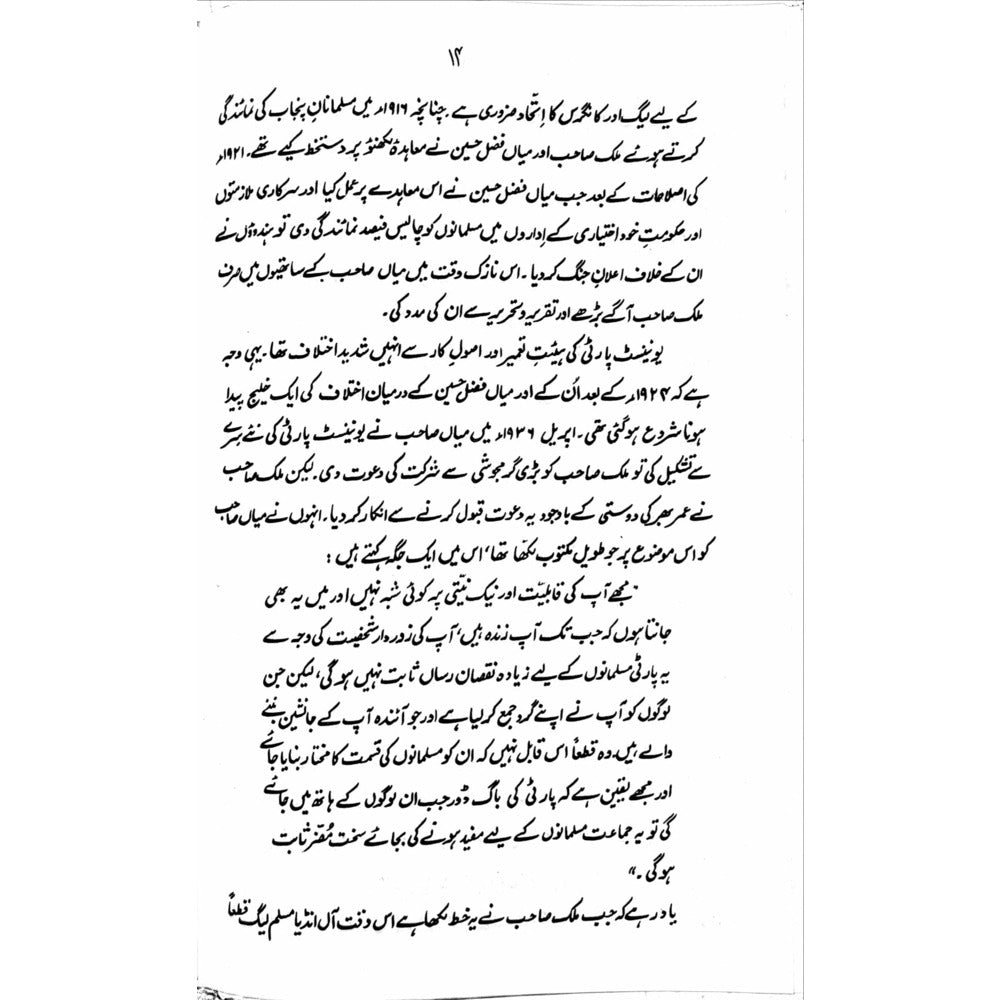 ۱۴
کے لیے لیگ اور کانگرس کا اِتّحاد ضروری ہے۔ چنانچہ ۱۹۱۶ء میں مسلمانانِ پنجاب کی نمائندگی
کرتے ہوئے ملک صاحب اور میاں فضل حسین نے معاہدۂ لکھنؤ پر دستخط کیے تھے۔ ۱۹۲۱ء
کی اصلاحات کے بعد جب میاں فضل حسین نے اس معاہدے پر عمل کیا اور سرکاری ملازمتوں
اور حکومتِ خود اختیاری کے اِداروں میں مسلمانوں کو چالیس فیصد نمائندگی دی تو ہندوؤں نے
ان کے خلاف اعلانِ جنگ کر دیا۔ اس نازک وقت میں میاں صاحب کے ساتھیوں میں صرف
ملک صاحب آگے بڑھے اور تقریر و تحریر سے ان کی مدد کی۔
یونینسٹ پارٹی کی ہیئتِ تعمیر اور اصولِ کار سے انہیں شدید اختلاف تھا۔ یہی وجہ
ہے کہ ۱۹۲۴ء کے بعد اُن کے اور میاں فضل حسین کے درمیان اختلاف کی ایک خلیج پیدا
ہونا شروع ہو گئی تھی۔ اپریل ۱۹۳۶ء میں میاں صاحب نے یونینسٹ پارٹی کی نئے سرے
سے تشکیل کی تو ملک صاحب کو بڑی گرمجوشی سے شرکت کی دعوت دی۔ لیکن ملک صاحب
نے عمر بھر کی دوستی کے باوجود یہ دعوت قبول کرنے سے انکار کر دیا۔ انہوں نے میاں صاحب
کو اس موضوع پر جو طویل مکتوب لکھّا تھا، اس میں ایک جگہ کہتے ہیں :
"مجھے آپ کی قابلیّت اور نیک نیّتی پر کوئی شبہ نہیں اور میں یہ بھی
جانتا ہوں کہ جب تک آپ زندہ ہیں، آپ کی زوردار شخصیت کی وجہ سے
یہ پارٹی مسلمانوں کے لیے زیادہ نقصان رساں ثابت نہیں ہو گی، لیکن جن
لوگوں کو آپ نے اپنے گرد جمع کر لیا ہے اور جو آئندہ آپ کے جانشین بننے
والے ہیں۔ وہ قطعاً اس قابل نہیں کہ ان کو مسلمانوں کی قسمت کا مختار بنایا جائے
اور مجھے یقین ہے کہ پارٹی کی باگ ڈور جب ان لوگوں کے ہاتھ میں جائے
گی تو یہ جماعت مسلمانوں کے لیے مفید ہونے کی بجائے سخت مُضّر ثابت
ہو گی۔"
یاد رہے کہ جب ملک صاحب نے یہ خط لکھا ہے اس وقت آل انڈیا مسلم لیگ قطعاً